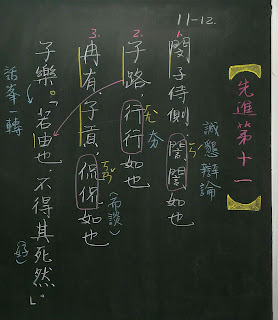 11-12.
【先進第十一】
誠懇辯論
1. 閔子侍側，誾誾如也
2. 子路，行行如也
夯
3. 冉有子貢，侃侃如也
(而談)
子樂。「若由也，不得其死然」。
話峯一轉